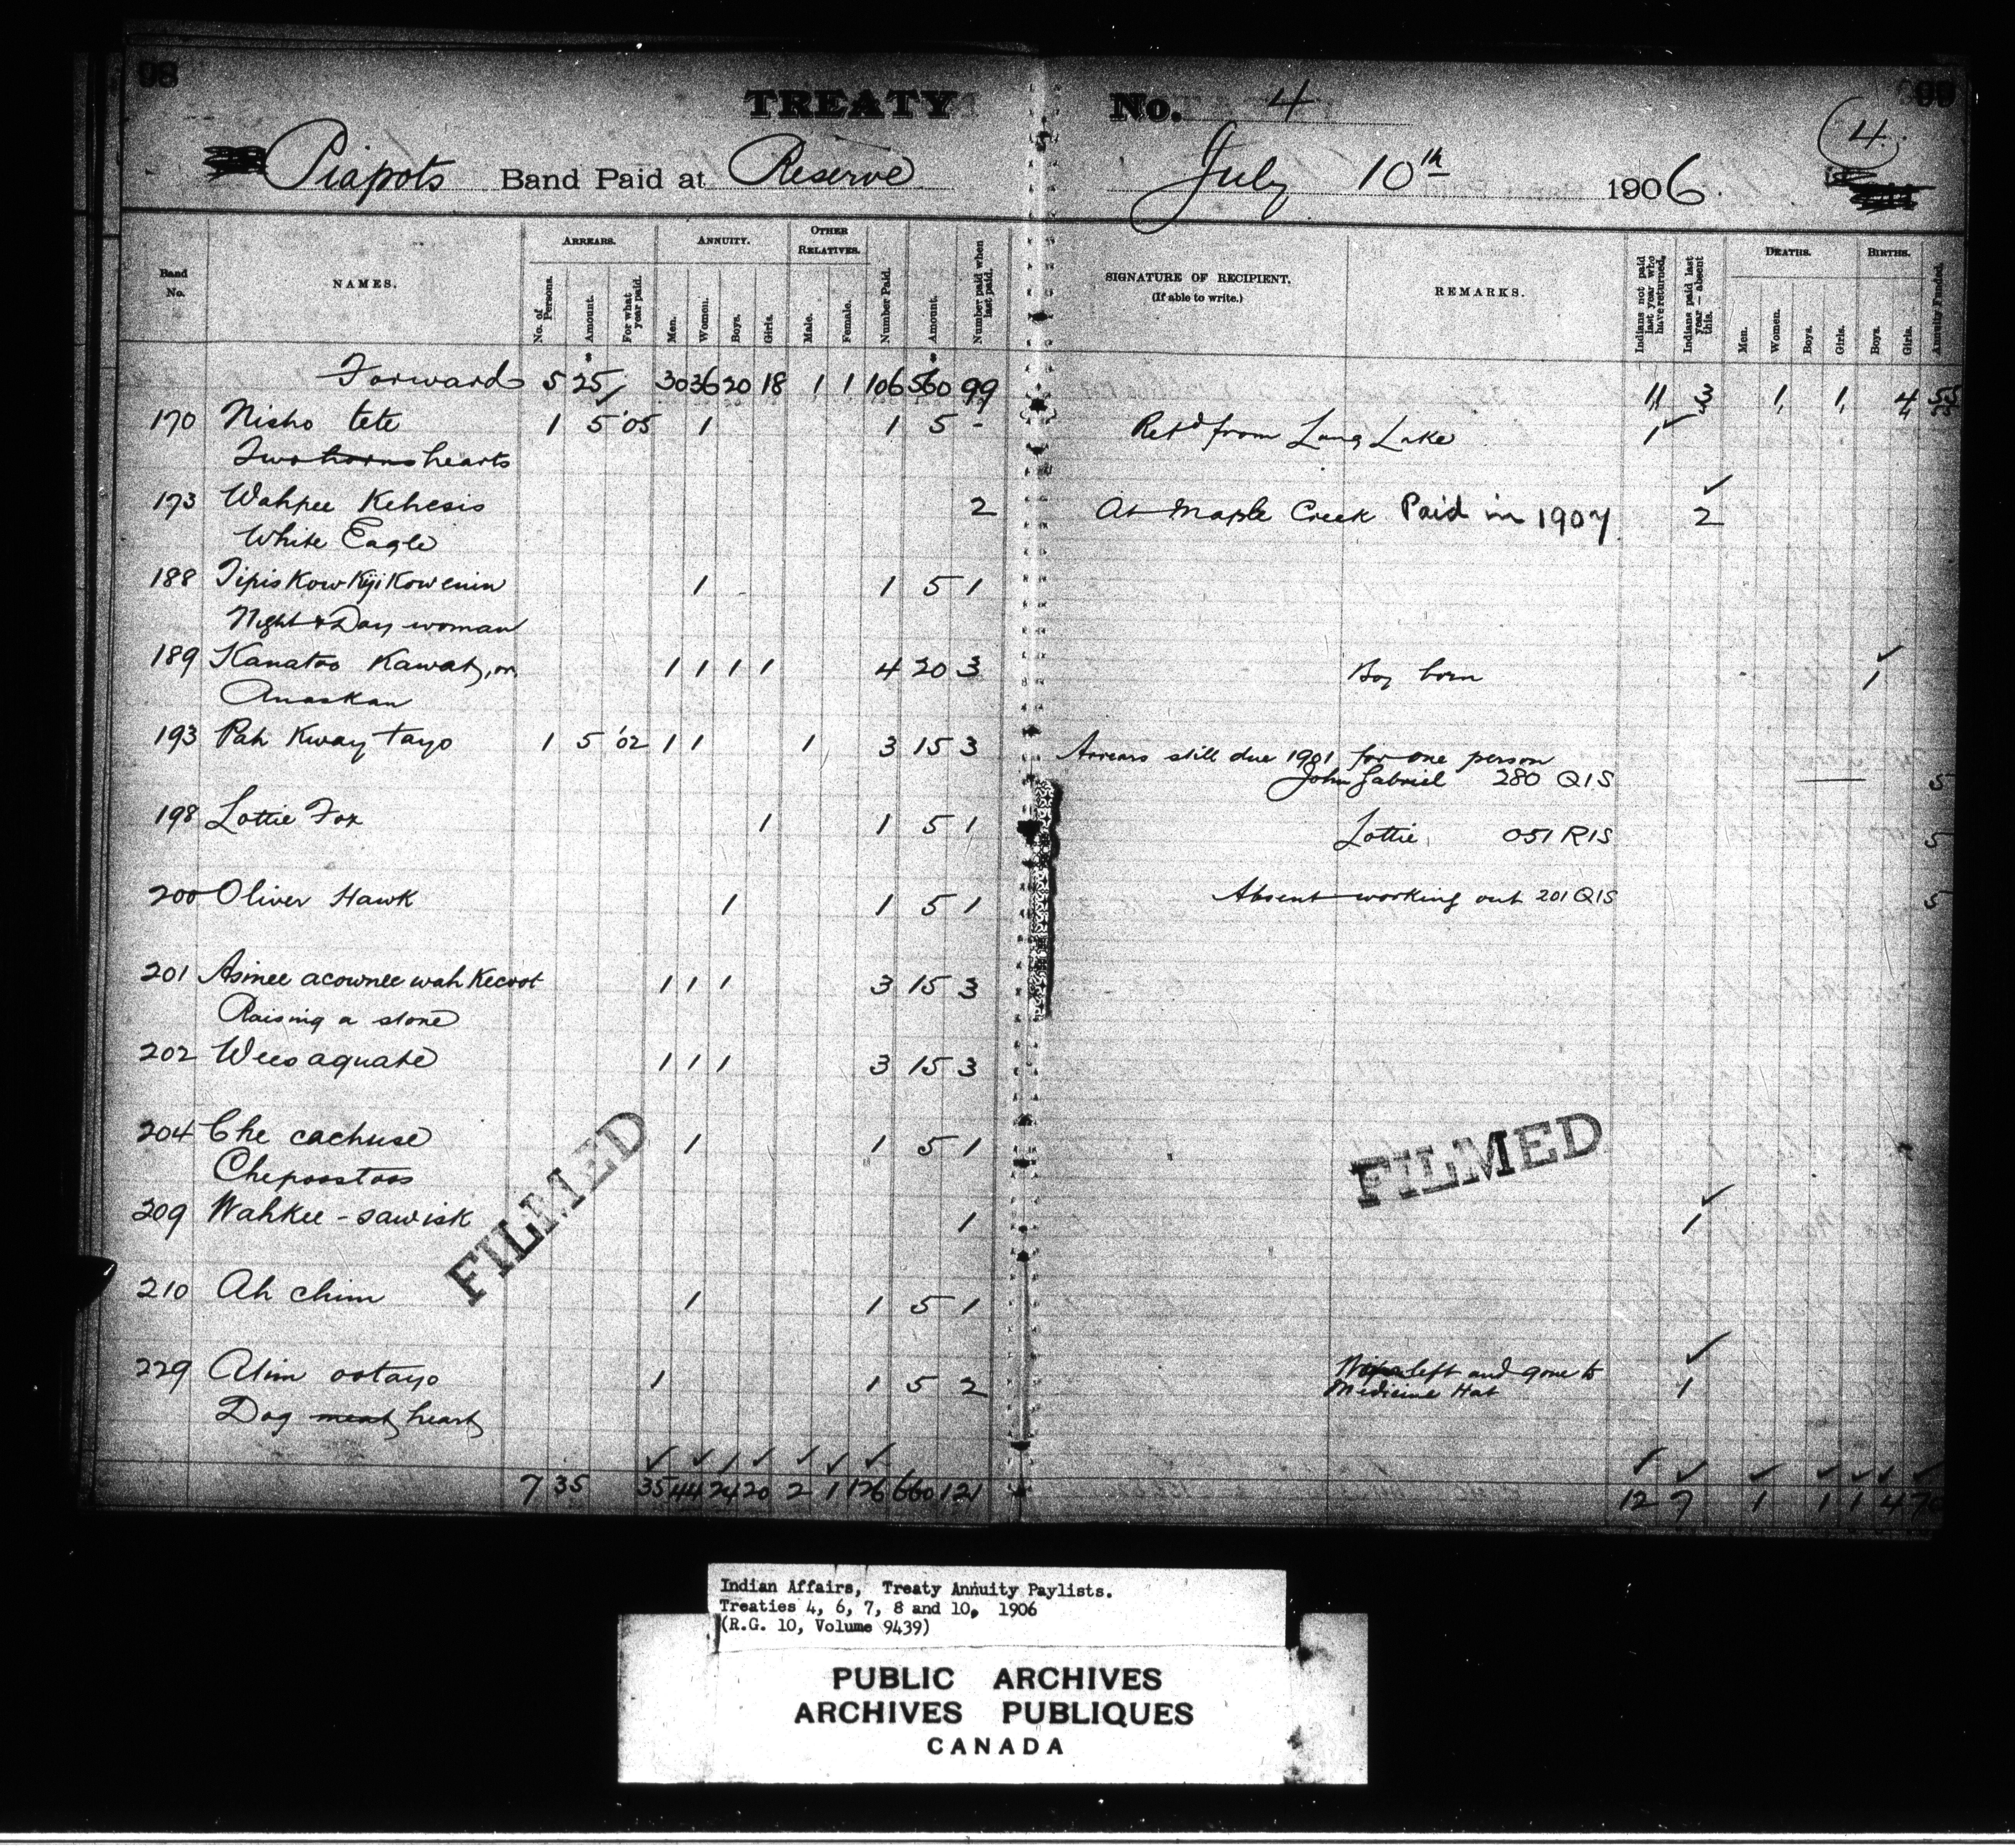 98
TREATY No. 4
99
4
Piapots Band Paid at Reserve July 10th 1906.
Band No.
NAMES.
ARREARS.
No. of Persons.
Amount.
For what year paid.
ANNUITY.
Men.
Women.
Boys.
Girls.
OTHER RELATIVES.
Male.
Female.
Number Paid.
Amount.
Number paid when last paid.
SIGNATURE OF RECIPIENT.
(If able to write.)
REMARKS.
Indians not paid last year who have returned.
Indians paid last year — absent this.
DEATHS.
Men.
Women.
Boys.
Girls.
BIRTHS.
Boys.
Girls.
Annuity Funded.
Forward 5 25 30 36 20 18 1 1 106 560 99 11 3 1 1 4 55
170 Nisho tete 1 5 '05 1 1 5 - Retd from Long Lake 1
Two horns hearts
173 Wahpee Kehesis 2 At Maple Creek Paid in 1907 2
White Eagle
188 Tipis Kow Kiji Kow enin 1 1 5 1
Night & Day woman
189 Kanatoo Kawat, or 1 1 1 1 4 20 3 Boy born 1
Anaskan
193 Pah Kway tayo 1 5 '02 1 1 1 3 15 3 Arrears still due 1901 for one person
John Gabriel 280 QIS 5
198 Lottie Fox 1 1 5 1 Lottie 051 RIS 5
200 Oliver Hawk 1 1 5 1 Absent working out 201 QIS 5
201 Asinee acownee wah Kecoot 1 1 1 3 15 3
Raising a stone
202 Wees aquate 1 1 1 3 15 3
204 Che cachuse 1 1 5 1
Chepoostoos
209 Wahkee-sawisk 1 1
210 Ah chim 1 1 5 1
229 Atim ootayo 1 1 5 2 left and gone to
Medicine Hat 1
Dog meat heart
7 35 35 44 24 20 2 1 126 660 121 12 7 1 1 1 4 70
FILMED
FILMED
Indian Affairs, Treaty Annuity Paylists.
Treaties 4, 6, 7, 8 and 10, 1906
(R.G. 10, Volume 9439)
PUBLIC ARCHIVES
ARCHIVES PUBLIQUES
CANADA